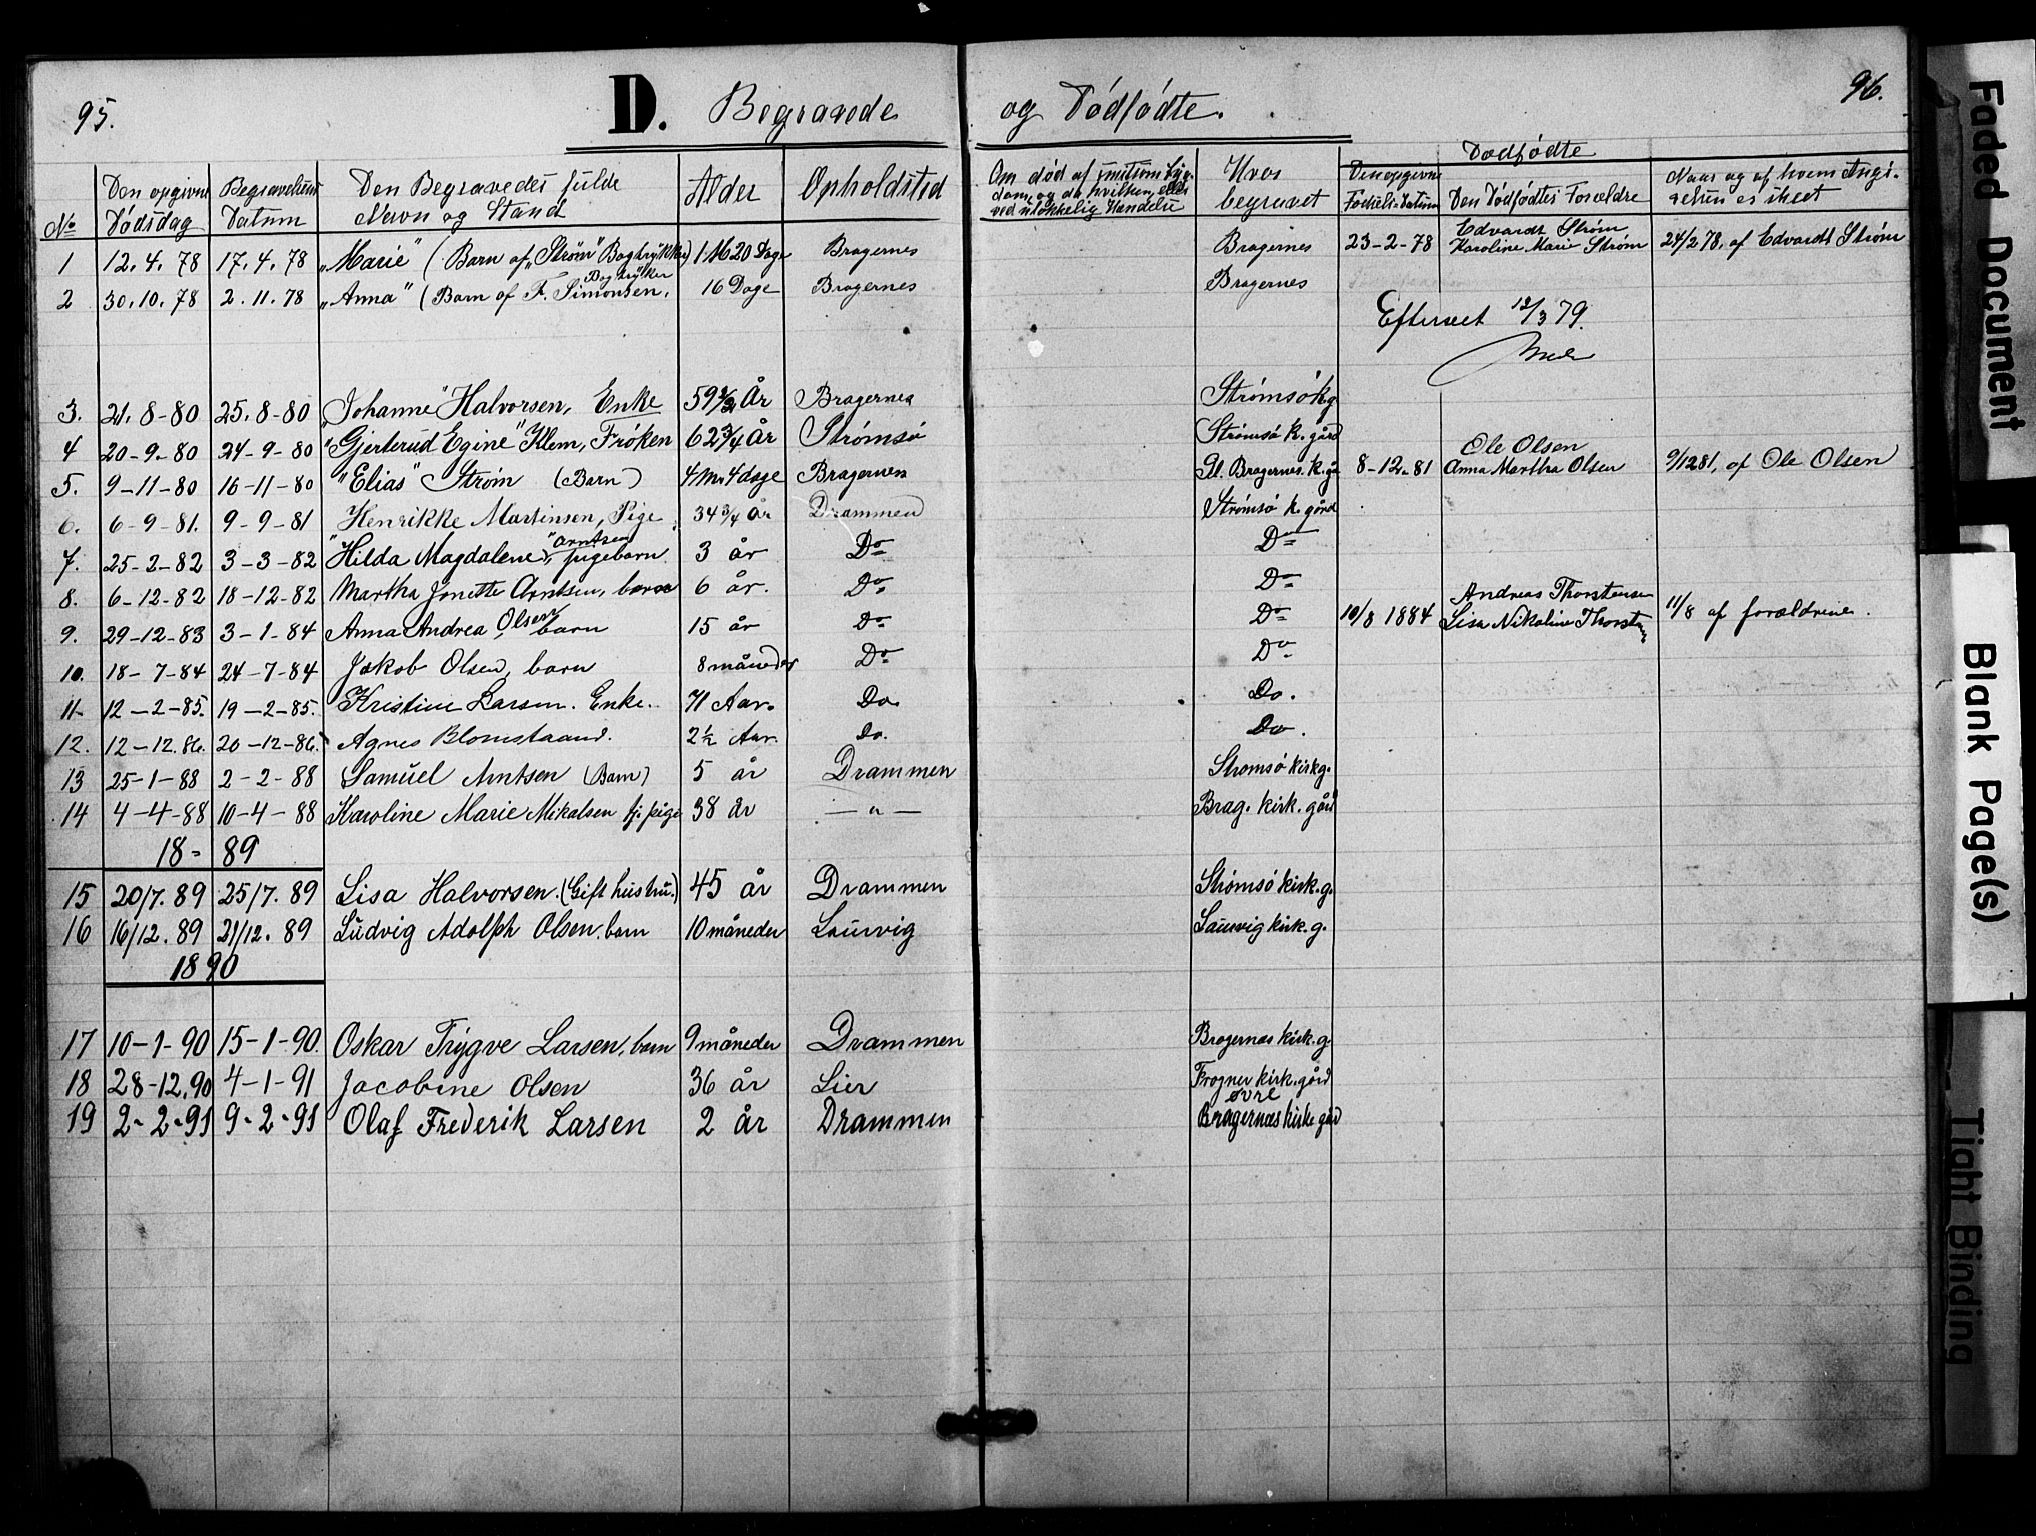 95.
D. Begravede og Dödfödte.
96.
No
Den opgivne Dödsdag
Begravelsens Datum
Den Begravedes fulde Navn og Stand
Alder
Opholdsted
Om död af smitsom Syg-
dom, og da hvilken, eller
ved ulökkelig Hændelse
Hvor begravet
Dödfödte
Den opgivne Födsels-Datum
Den Dödfödtes Foreldre
Naar og af hvem Angi-
velsen er skeet
1 12. 4. 78 17. 4. 78 „Marie" (Barn af „Strøm" Bogtrykker) 1 M 20 Dage Bragernes Bragernes 23-2-78 Edvardt Strøm Karoline Marie Strøm 24/2 78, af Edvardt Strøm
2 30. 10. 78 2. 11. 78 „Anna" (Barn af F. Simonsen, Bogtrykker 16 Dage Bragernes Bragernes
Efterseet 12/3 79.
3. 21. 8-80 25. 8-80 „Johanne" Halvorsen, Enke 59 1/2 År Bragernes Strømsö kg
4 20-9-80 24-9-80 "Gjerterud Egine" Klem, Frøken 62 3/4 år Strømsö Strømsö k. gård
5. 9-11-80 16-11-80 "Elias" Strøm (Barn) 4 Mn 4 dage Bragernes Gl. Bragernes. k. gå 8-12-81 Ole Olsen Anna Martha Olsen 9/12 81, af Ole Olsen
6. 6-9-81. 9-9-81 Henrikke Martinsen, Pige 34 3/4 år Drammen Strømsö k. gård
7. 25-2-82 3-3-82 "Hilda Magdalene" Arntsen, pigebarn 3 år Do Do
8. 6-12-82 18-12-82 Martha Jonette Arntsen, barn 6 år. Do Do
9. 29-12-83 3-1-84 Anna Andrea Olsen, barn 15 år Do Do 10/8 1884 Andreas Thorstensen Lisa Nikoline Thorstensen 11/8 af foreldrene.
10. 18-7-84 24-7-84 Jakob Olsen, barn 8 måneder Do Do
11- 12-2-85. 19-2-85. Kristine Larsen. Enke. 71 Aar. Do. Do.
12. 12-12. 86. 20-12-86. Agnes Blomstaand. 2 1/2 Aar. Do. Do.
13 25-1-88 2-2-88 Samuel Arntsen (Barn) 5 år Drammen Stromsö kirkg.
14 4-4-88 10-4-88 Karoline Marie Mikalsen tj. pige 38 år —"— Brag. kirk. gård
18-89
15 20/7. 89 25/7. 89 Lisa Halvorsen. (Gift hustru.) 45 år Drammen Strömsö kirk. g.
16 16/12. 89 21/12. 89 Ludvig Adolph Olsen. barn 10 måneder Laurvig Laurvig kirk. g.
1890
17 10-1-90 15-1-90. Oskar Trygve Larsen, barn 9 måneder Drammen Bragernæs kirk. g
18 28-12. 90 4-1-91 Jacobine Olsen 36 år Lier Frogner kirk. gård
19 2-2-91 9-2-91 Olaf Frederik Larsen 2 år Drammen øvre Bragernæs kirke gård
Faded Document
Blank Page(s)
Tight Binding